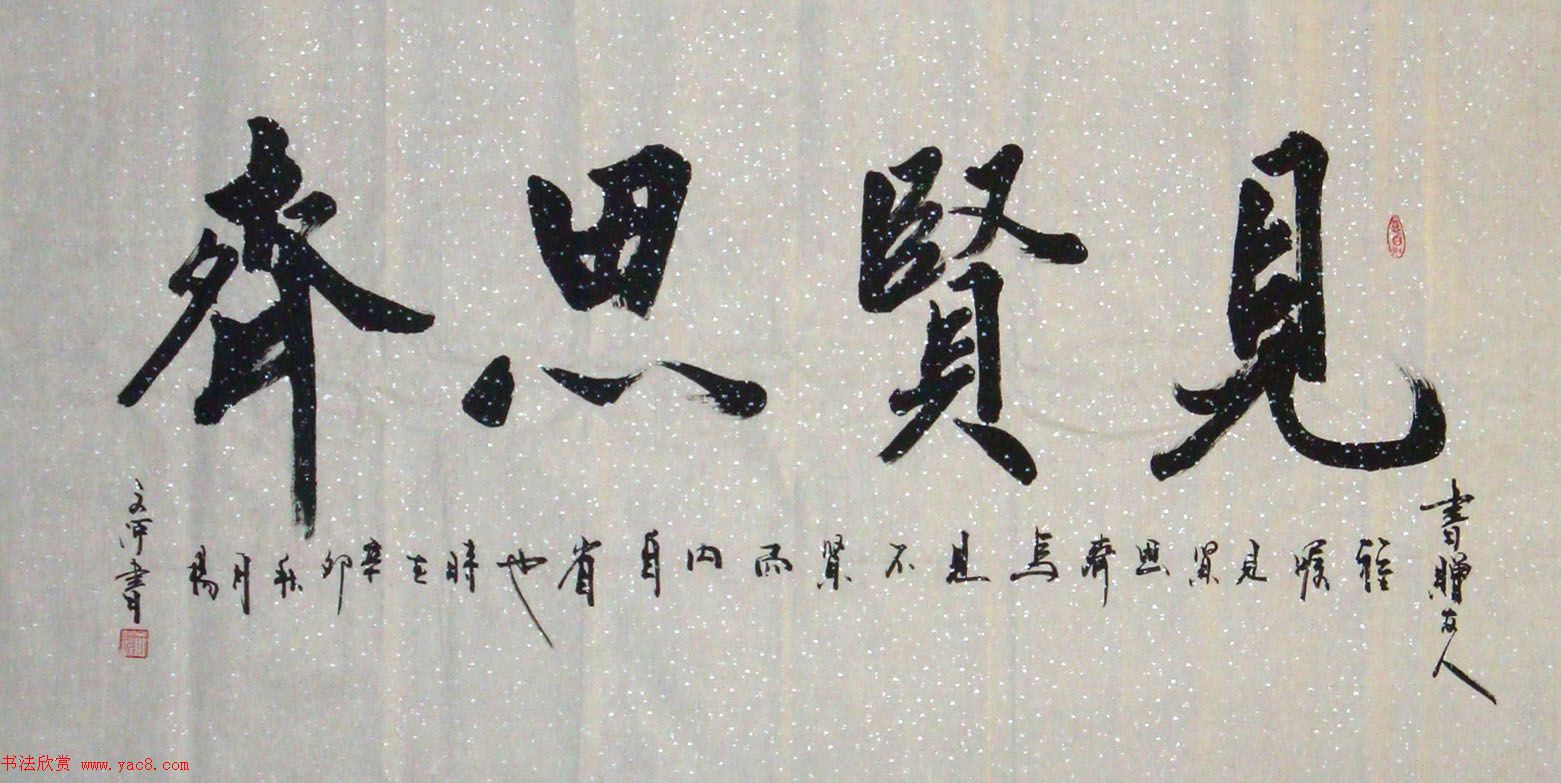 見賢思齊
書贈友人
見賢思齊焉見不賢而內自省也時在辛卯秋月楊
文沛書
书法欣赏 www.yac8.com